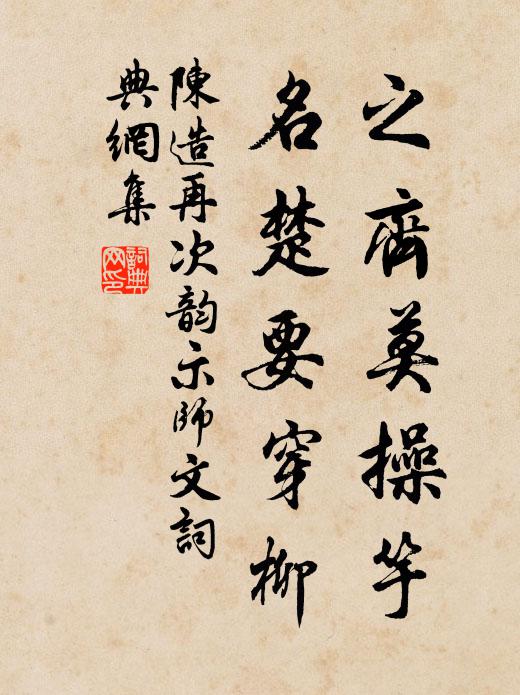 之齊莫操竽
名楚要穿柳
陳造再次韵示師文詞
典網集
詞典
网印